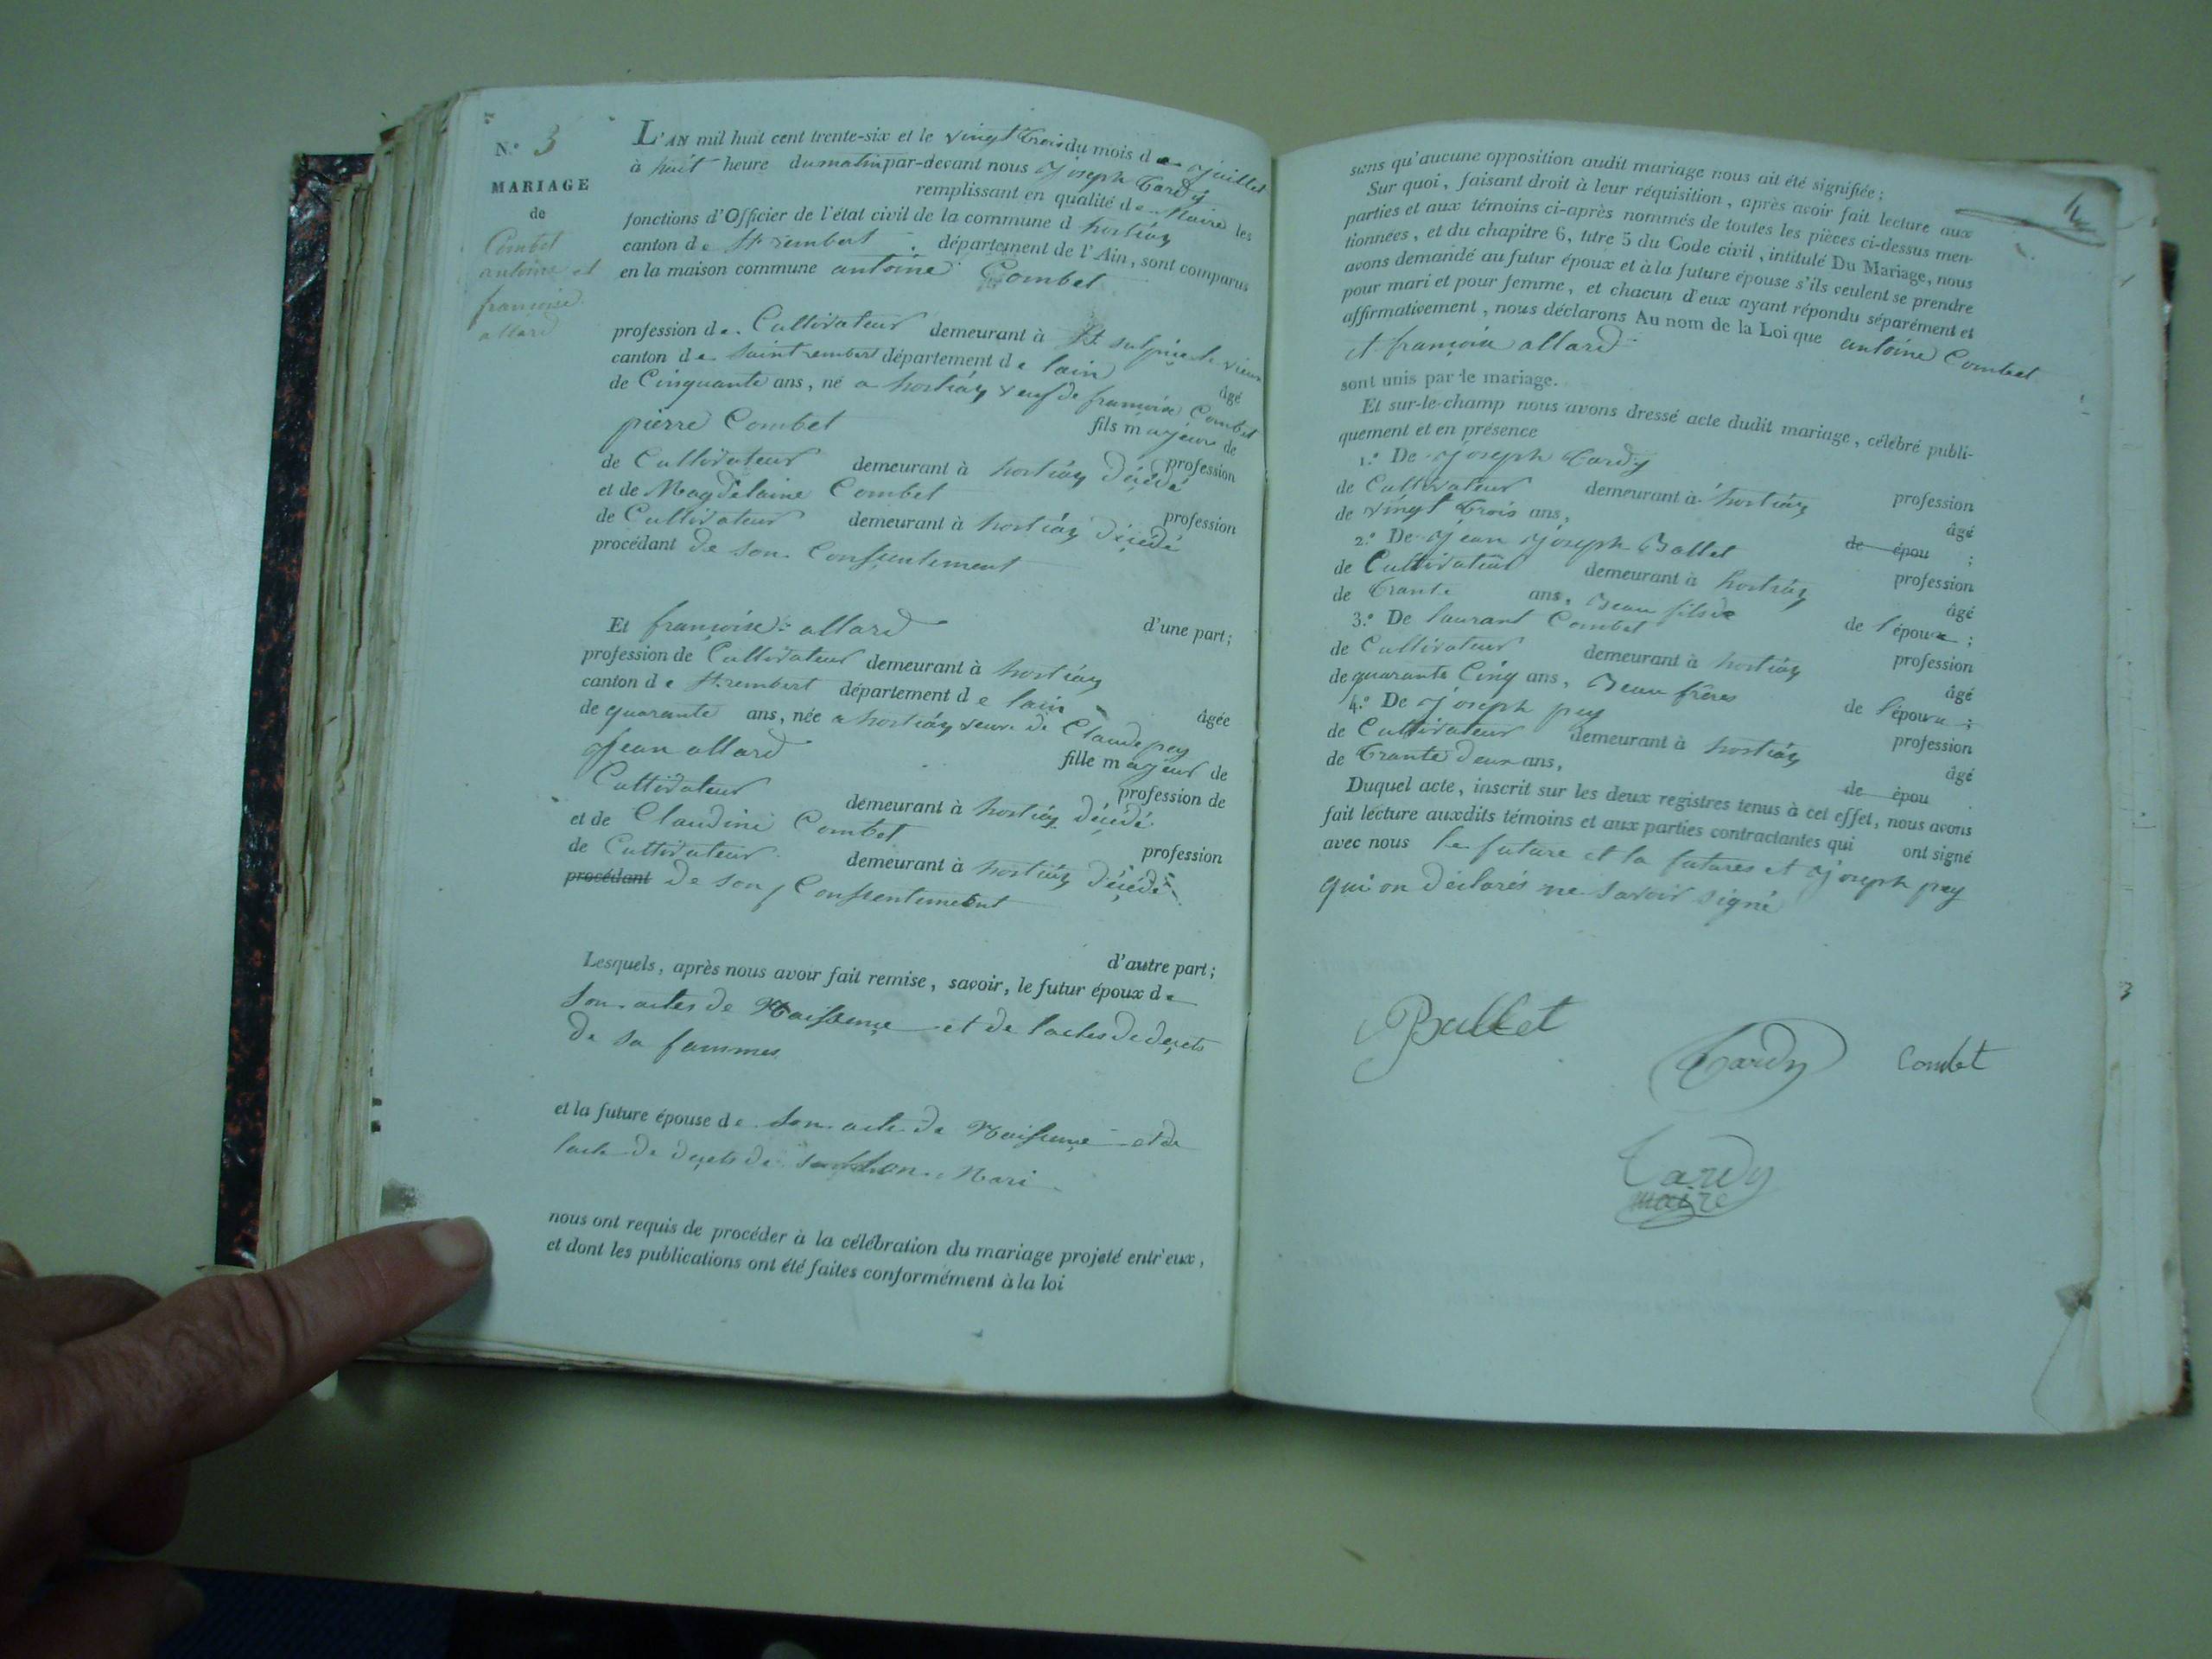 N.o 3
MARIAGE
de
Combet
antoine et
francoise
allard
L'AN mil huit cent trente-six et le vingt trois du mois de juillet
à huit heure du matin par-devant nous joseph tardy
remplissant en qualité de Maire les
fonctions d'Officier de l'état civil de la commune d hostiaz
canton de St rembert département de l'Ain, sont comparus
en la maison commune antoine Combet
profession de Cultivateur demeurant à St sulpice le vieux
canton de Saint rembert département de lain âgé
de Cinquante ans, né a hostiaz veuf de francoise Combet
fils majeur de
pierre Combet profession
de Cultivateur demeurant à hostiaz décédé
et de Magdelaine Combet profession
de Cultivateur demeurant à hostiaz décédé
procédant de son Consentement
d'une part;
Et françoise allard
profession de Cultivateur demeurant à hostiaz
canton de St rembert département de lain âgée
de quarante ans, née a hostiaz veuve de Claude pey
fille majeur de
jean allard profession de
Cultivateur demeurant à hostiaz décédé
et de Claudine Combet profession
de Cultivateur demeurant à hostiaz décédé
procédant de son Consentement
d'autre part;
Lesquels, après nous avoir fait remise, savoir, le futur époux de
Son actes de Naissence et de lactes de decets
de sa fammes
et la future épouse de Son acte de Naissence et de
lacte de decets de son Mari
nous ont requis de procéder à la célébration du mariage projeté entr'eux,
et dont les publications ont été faites conformément à la loi
4
sans qu'aucune opposition audit mariage nous ait été signifiée;
Sur quoi, faisant droit à leur réquisition, après avoir fait lecture aux
parties et aux témoins ci-après nommés de toutes les pièces ci-dessus men-
tionnées, et du chapitre 6, titre 5 du Code civil, intitulé Du Mariage, nous
avons demandé au futur époux et à la future épouse s'ils veulent se prendre
pour mari et pour femme, et chacun d'eux ayant répondu séparément et
affirmativement, nous déclarons Au nom de la Loi que antoine Combet
et françoise allard
sont unis par le mariage.
Et sur-le-champ nous avons dressé acte dudit mariage, célébré publi-
quement et en présence
1.o De joseph tardy profession
de Cultivateur demeurant à hostiaz âgé
de vingt trois ans, de épou ;
2.o De jean joseph Ballet profession
de Cultivateur demeurant à hostiaz âgé
de trante ans, Beau fils de de l'époux ;
3.o De laurant Combet profession
de Cultivateur demeurant à hostiaz âgé
de quarante Cinq ans, Beau frères de l'époux ;
4.o De joseph pey profession
de Cultivateur demeurant à hostiaz âgé
de trante deux ans, de épou
Duquel acte, inscrit sur les deux registres tenus à cet effet, nous avons
fait lecture auxdits témoins et aux parties contractantes qui ont signé
avec nous le future et la futures et joseph pey
qui on déclarés ne savoir signé
Ballet
tardy
Combet
tardy
maire
3